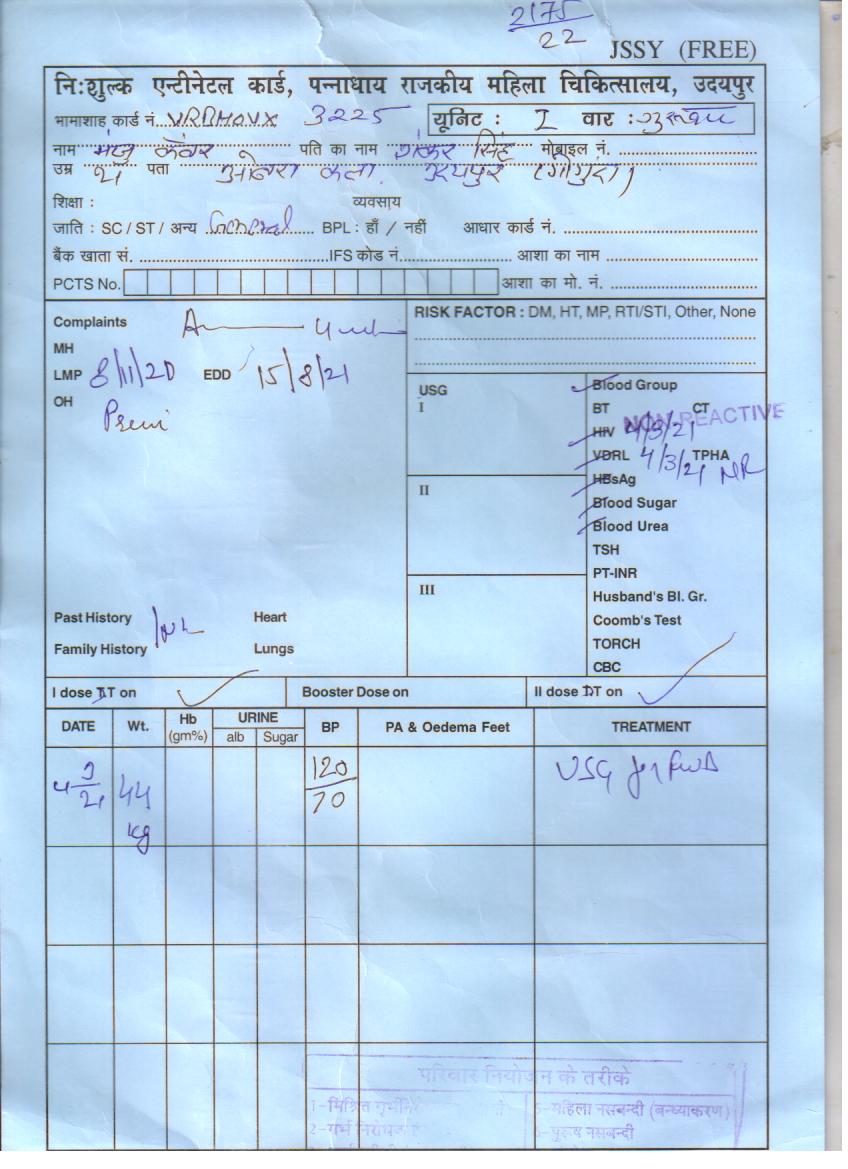 2175
22
JSSY (FREE)
निःशुल्क एन्टीनेटल कार्ड, पन्नाधाय राजकीय महिला चिकित्सालय, उदयपुर
भामाशाह कार्ड नं. 3225 यूनिट : I वार : गुरूवार
नाम मंजु कँवर पति का नाम शंकर सिंह मोबाइल नं.
उम्र 21 पता कला उदयपुर (गोगुंदा)
शिक्षा : व्यवसाय
जाति : SC / ST / अन्य General BPL : हाँ / नहीं आधार कार्ड नं.
बैंक खाता सं. IFS कोड नं. आशा का नाम
PCTS No. आशा का मो. नं.
Complaints
RISK FACTOR : DM, HT, MP, RTI/STI, Other, None
MH
LMP 8/11/20 EDD 15/8/21
OH Primi
USG
I
II
III
Blood Group
BT CT
NON REACTIVE
HIV 4/3/21
VDRL 4/3/21 TPHA
NR
HBsAg
Blood Sugar
Blood Urea
TSH
PT-INR
Husband's Bl. Gr.
Coomb's Test
TORCH
CBC
Past History Heart
Family History Lungs
I dose TT on Booster Dose on II dose TT on
DATE Wt. Hb (gm%) URINE alb Sugar BP PA & Oedema Feet TREATMENT
4/3/21 44 kg 120/70 USG for FWB
परिवार नियोजन के तरीके
5-महिला नसबन्दी (बन्ध्याकरण)
6-पुरूष नसबन्दी